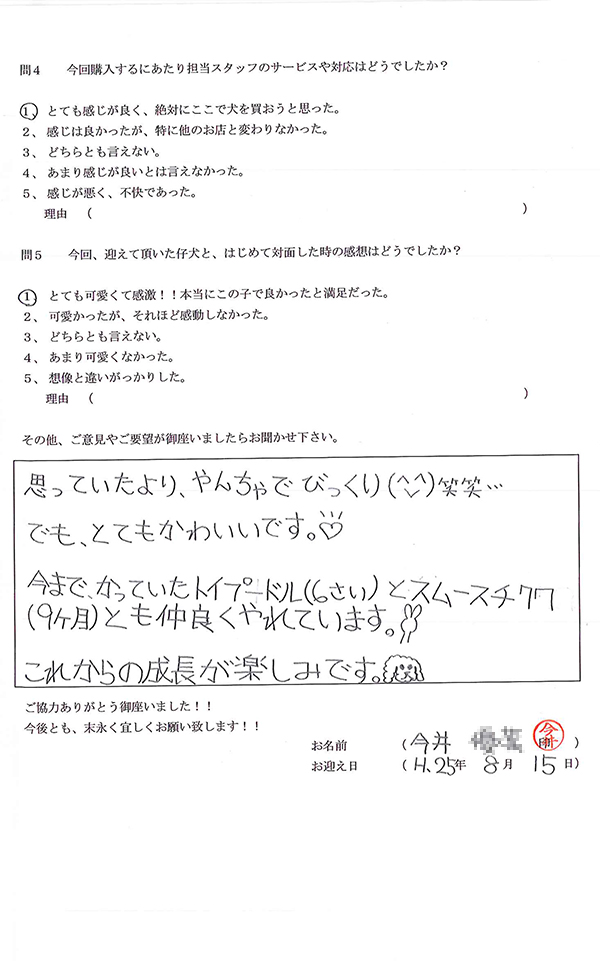 問4 今回購入するにあたり担当スタッフのサービスや対応はどうでしたか?
1、とても感じが良く、絶対にここで犬を買おうと思った。
2、感じは良かったが、特に他のお店と変わりなかった。
3、どちらとも言えない。
4、あまり感じが良いとは言えなかった。
5、感じが悪く、不快であった。
理由 ( )
問5 今回、迎えて頂いた仔犬と、はじめて対面した時の感想はどうでしたか?
1、とても可愛くて感激!!本当にこの子で良かったと満足だった。
2、可愛かったが、それほど感動しなかった。
3、どちらとも言えない。
4、あまり可愛くなかった。
5、想像と違いがっかりした。
理由 ( )
その他、ご意見やご要望が御座いましたらお聞かせ下さい。
思っていたより、やんちゃでびっくり(^◡^)笑笑…
でも、とてもかわいいです。♡
今まで、かっていたトイプードル(6さい)とスムースチワワ
(9ヶ月)とも仲良くやれています。
これからの成長が楽しみです。
ご協力ありがとう御座いました!!
今後とも、末永く宜しくお願い致します!!
お名前 (今井 印 今井)
お迎え日 (H.25年 8月 15日)